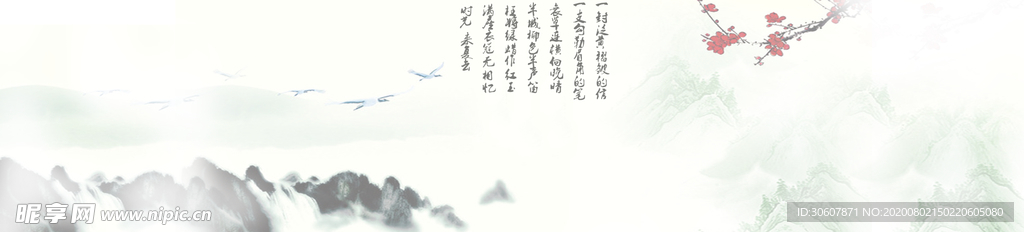 一封泛黄褶皱的信
一支勾勒眉角的笔
衰草连横向晚晴
半城柳色半声笛
枉将绿蜡作红玉
满座衣冠无相忆
时光 来复去
昵享网 www.nipic.cn
ID:30607871 NO:20200802150220605080